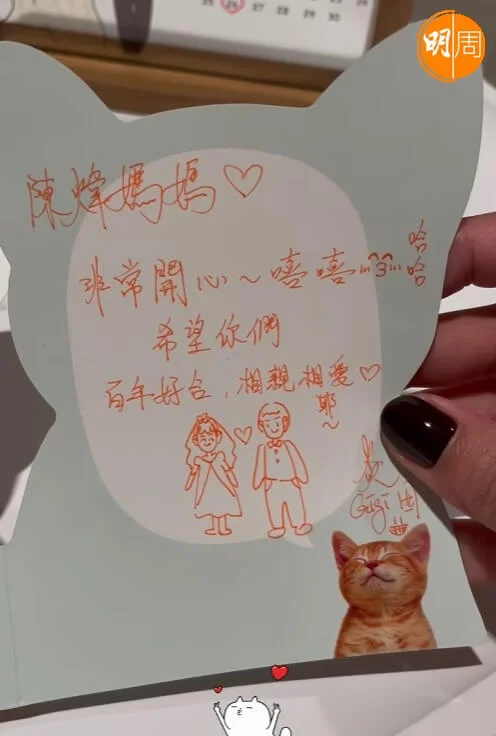 25 26 27 28
29 30
明周
陳煒媽媽♡
非常開心~嘻嘻
哈哈
希望你們
百年好合，相親相愛♡
耶~
Gigi